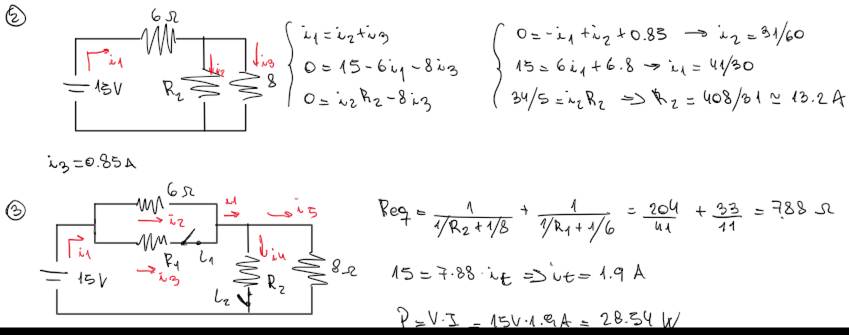 2
6Ω
i1
15V
i2
R2
i3
8
i1 = i2 + i3
0 = 15 - 6i1 - 8i3
0 = i2R2 - 8i3
0 = -i1 + i2 + 0.85 → i2 = 31/60
15 = 6i1 + 6.8 → i1 = 41/30
34/5 = i2R2 => R2 = 408/31 ≃ 13.2 A
i3 = 0.85A
3
6Ω
i1
i2
i1
i5
R1
L1
i3
15V
i4
R2
L2
8Ω
Req = 1/(1/R2 + 1/8) + 1/(1/R1 + 1/6) = 204/41 + 33/11 = 7.88 Ω
15 = 7.88 · it => it = 1.9 A
P = V·I = 15V · 1.9A = 28.54 W